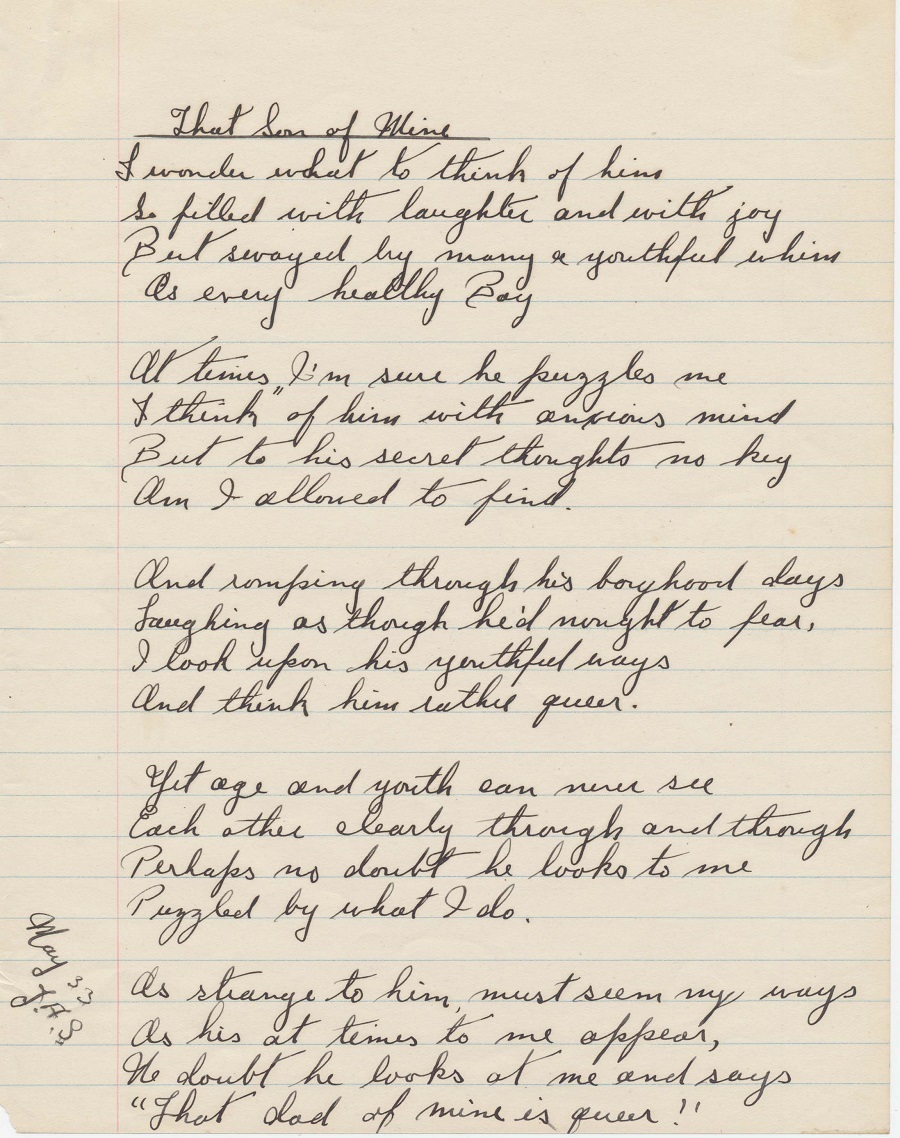 That Son of Mine
I wonder what to think of him
So filled with laughter and with joy
But swayed by many a youthful whim
As every healthy Boy
At times, I'm sure he puzzles me
I think" of him with anxious mind
But to his secret thoughts no key
Am I allowed to find.
And romping through his boyhood days
Laughing as though he'd nought to fear,
I look upon his youthful ways
And think him rather queer.
Yet age and youth can never see
Each other clearly through and through
Perhaps no doubt he looks to me
Puzzled by what I do.
As strange to him, must seem my ways
As his at times to me appear,
No doubt he looks at me and says
"That dad of mine is queer!"
May 33
J.A.S.